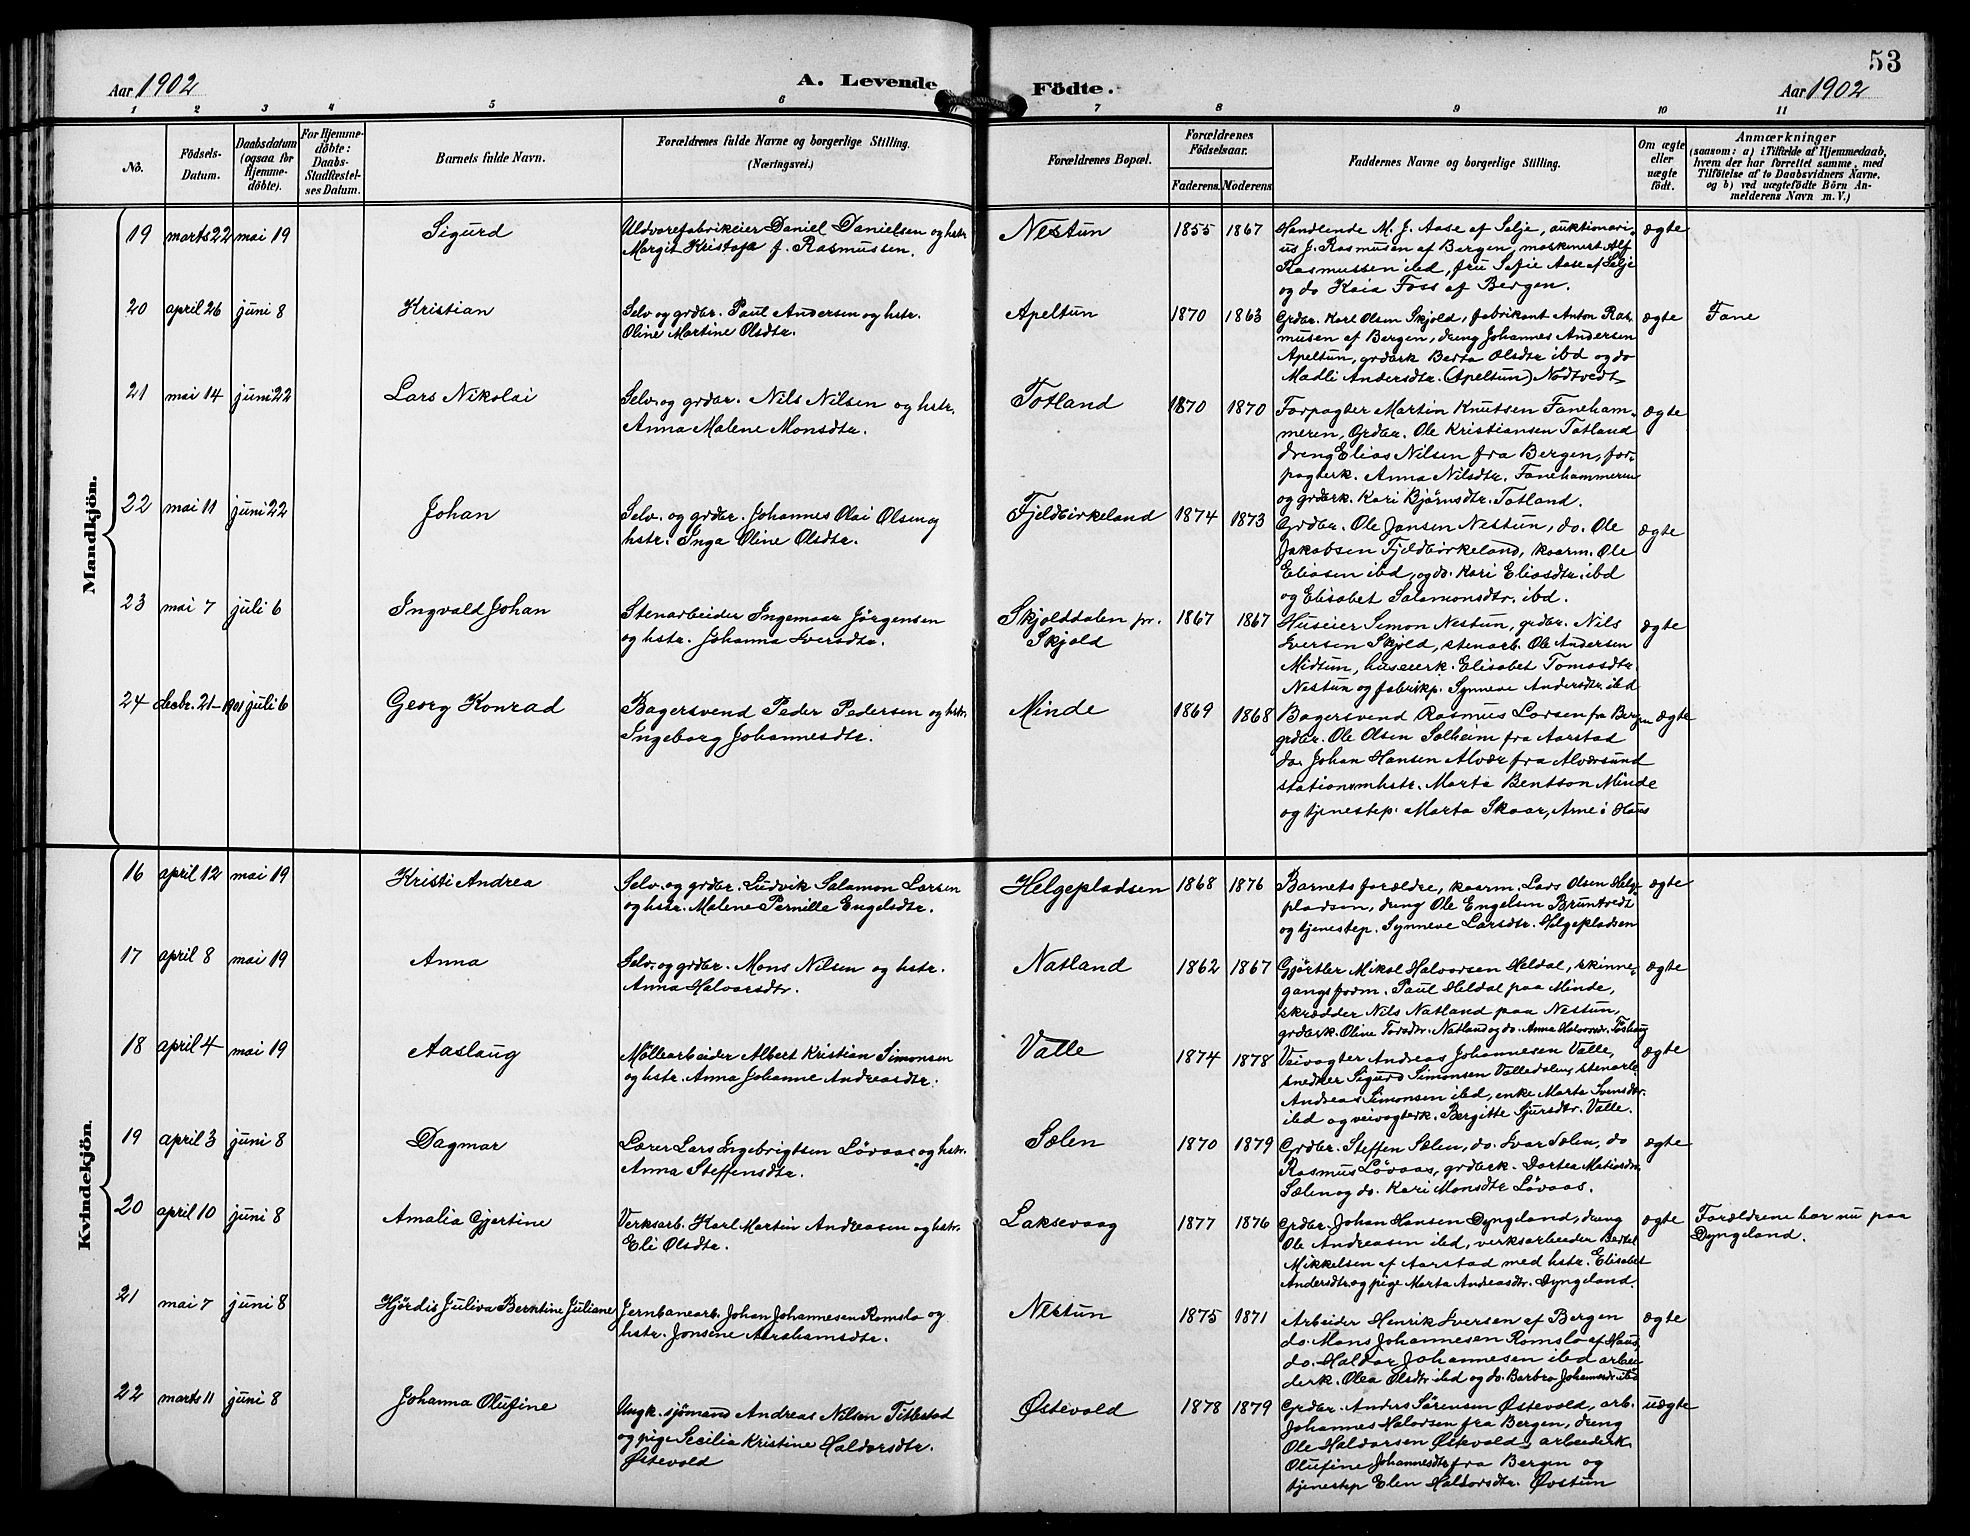 53
Aar 1902
A. Levende
Födte.
Aar 1902
1 2 3 4 5 6 7 8 9 10 11
No.
Födsels-
Datum.
Daabsdatum
(ogsaa for
Hjemme-
döbte).
For Hjemme-
döbte:
Daabs-
Stadfæstel-
ses Datum.
Barnets fulde Navn.
Forældrenes fulde Navne og borgerlige Stilling.
(Næringsvei.)
Forældrenes Bopæl.
Forældrenes
Födselsaar.
Faderens. Moderens
Faddernes Navne og borgerlige Stilling.
Om ægte
eller
uægte
födt.
Anmærkninger
(saasom: a) i Tilfælde af Hjemmedaab,
hvem der har forrettet samme, med
Tilföielse af to Daabsvidners Navne.
og b) ved uægtefödte Börn An-
melderens Navn m. V.)
Mandkjön.
19 marts 22 mai 19
Sigurd
Uldvarefabrikeier Daniel Danielsen og hstr
Margit Kristofa f. Rasmussen.
Nestun
1855 1867
Handlende M. J. Aase af Selje, auktionari-
us J. Rasmusen af Bergen, maskinert Alf
Rasmussen ibd, fru Sofie Aase af Selje
og do Kaia Foss af Bergen.
ægte
20 april 26 juni 8
Kristian
Selv. og grdbr. Paul Andersen og hstr.
Oline Martine Olsdtr.
Apeltun
1870 1863
Grdbr. Karl Olsen Skjold, fabrikant Anton Ras-
musen af Bergen, dreng Johannes Andersen
Apeltun, grdbrk Berta Olsdtr ibd og do
Madli Andersdtr. (Apeltun) Nødtvedt
ægte
Fane
21 mai 14 juni 22
Lars Nikolai
Selv. og grdbr. Nils Nilsen og hstr.
Anna Malene Monsdtr.
Totland
1870 1870
Forpagter Martin Knutsen Faneham-
meren, Grdbr. Ole Kristiansen Totland
dreng Elias Nilsen fra Bergen, for-
pagterk. Anna Nilsdtr. Fanehammeren
og grdbrk. Kari Bjørnsdtr. Totland.
ægte
22 mai 11 juni 22
Johan
Selv. og grdbr. Johannes Olai Olsen og
hstr. Inga Oline Olsdtr.
Fjeldbirkeland
1874 1873
Grdbr. Ole Jansen Nestun, do. Ole
Jakobsen Fjeldbirkeland, kaarm. Ole
Eliasen ibd, og do. Kari Eliasdtr. ibd
og Elisabet Salamonsdtr. ibd.
ægte
23 mai 7 juli 6
Ingvald Johan
Stenarbeider Ingemaar Jörgensen
og hstr. Johanna Iversdtr.
Skjolddalen pr.
Skjold
1867 1867
Huseier Simon Nestun, grdbr. Nils
Iversen Skjold, stenarb. Ole Andersen
Midtun, huseierk. Elisabet Tomasdtr.
Nestun og fabrikp. Synneve Andersdtr ibd
ægte
24 decbr. 21–1901 juli 6
Georg Konrad
Bagersvend Peder Pedersen og hstr.
Ingeborg Johannesdtr.
Minde
1869 1868
Bagersvend Rasmus Larsen fra Bergen
grdbr. Ole Olsen Solheim fra Aarstad
do. Johan Hansen Alvær fra Alversund
stationsmhstr. Marta Bentson Minde
og tjenestep. Marta Skaar, Arne i Haus
ægte
Kvindekjön.
16 april 12 mai 19
Kristi Andrea
Selv. og grdbr. Ludvik Salamon Larsen
og hstr. Malene Pernille Engelsdtr.
Helgepladsen
1868 1876
Barnets forældre, kaarm. Lars Olsen Helge-
pladsen, dreng Ole Engelsen Bruntvedt
og tjenestep. Synneve Larsdtr. Helgepladsen
ægte
17 april 8 mai 19
Anna
Selv. og grdbr. Mons Nilsen og hstr.
Anna Halvorsdtr.
Natland
1862 1867
Gjørtler Mikal Halvorsen Heldal, skinne-
gangsform. Paul Heldal paa Minde,
skrædder Nils Natland paa Nestun,
grdbrk. Oline Torsdtr. Natland og do. Anna Halvorsdr.
ægte
18 april 4 mai 19
Aaslaug
Möllearbeider Albert Kristian Simonsen
og hstr. Anna Johanne Andreasdtr.
Valle
1874 1878
Veivogter Andreas Johannesen Valle,
snedker Sigurd Simonsen Valledalen, stenarb.
Andreas Simonsen ibd, enke Marta Svensdtr.
ibd og veivogterk. Bergitte Sjursdtr. Valle.
ægte
19 april 3 juni 8
Dagmar
Lærer Lars Ingebrigtsen Løvaas og hstr.
Anna Steffensdtr.
Sælen
1870 1879
Grdbr. Steffen Sælen, do. Ivar Sælen, do
Rasmus Løvaas, grdbrk. Dortea Matiasdtr
Sælen og do. Kari Monsdtr Løvaas.
ægte
20 april 10 juni 8
Amalia Gjertine
Verksarb. Karl Martin Andreasen og hstr.
Eli Olsdtr.
Laksevaag
1877 1876
Grdbr. Johan Hansen Dyngeland, dreng
Ole Andreasen ibd, verksarbeider Bertel
Mikkelsen af Aarstad med hstr. Elisabet
Andersdtr. og pige Marta Andreasdtr. Dyngeland.
ægte
Forældrene bor nu paa
Dyngeland.
21 mai 7 juni 8
Hjørdis Juliva Berntine Juliane
Jernbanearb. Johan Johannesen Romslo og
hstr. Jonsine Abrahamsdtr.
Nestun
1875 1871
Arbeider Henrik Iversen af Bergen
do. Mons Johannesen Romslo af Haus,
do. Haldor Johannesen ibd arbei-
derk. Olea Olsdtr ibd og do. Barbro Johannesdtr ibd
ægte
22 marts 11 juni 8
Johanna Olufine
Ungk. sjömand Andreas Nilsen Titlestad
og pige Secilia Kristine Haldorsdtr.
Østevold
Østevold
1878 1879
Grdbr. Anders Sørensen Østevold, arb.
Johannes Halvorsen fra Bergen, dreng
Ole Haldorsen Østevold, arbeiderk.
Olufine Johannesdtr fra Bergen og
tjenestep Elen Haldorsdtr. Øvstun
uægte